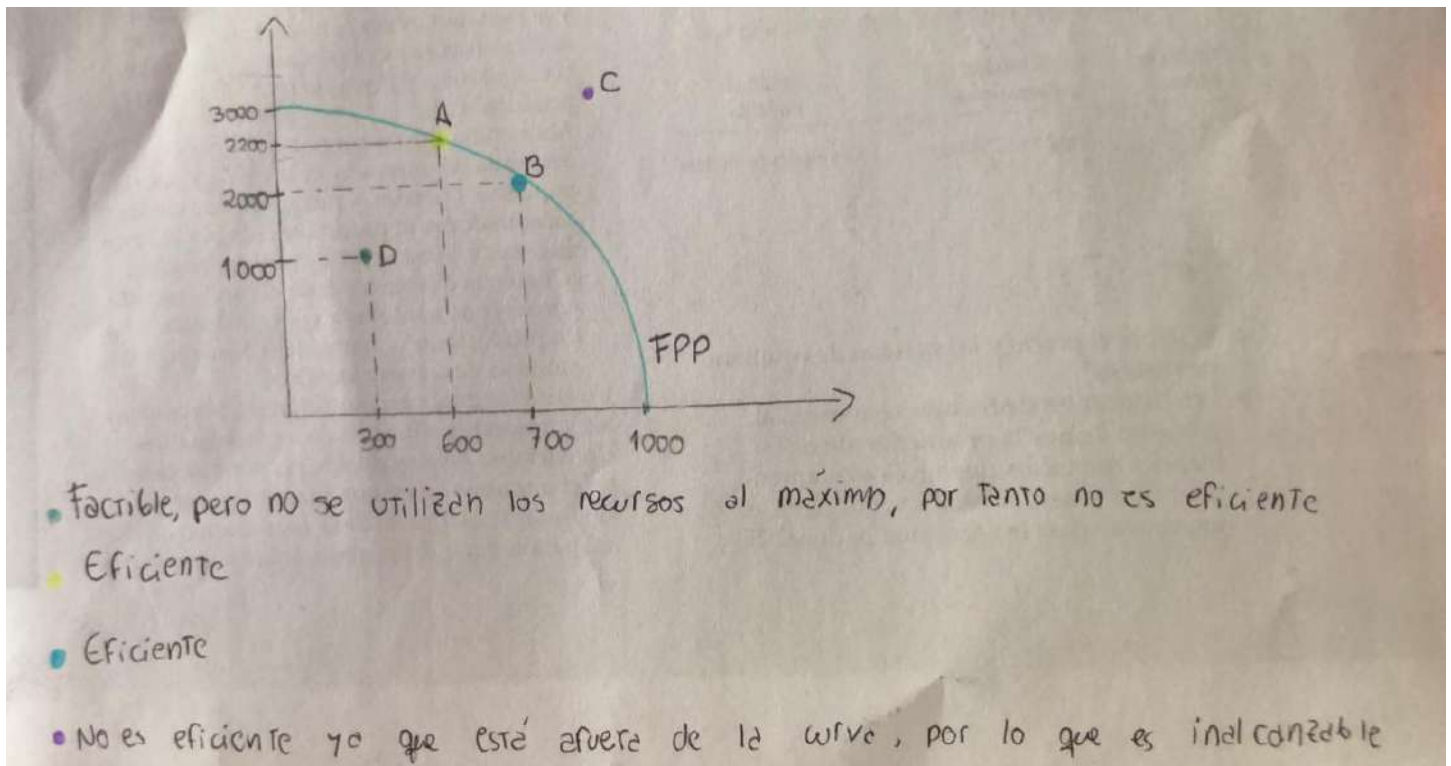 C
3000
A
2200
B
2000
D
1000
FPP
300 600 700 1000
Factible, pero no se utilizan los recursos al máximo, por tanto no es eficiente
Eficiente
Eficiente
No es eficiente ya que está afuera de la curva, por lo que es inalcanzable